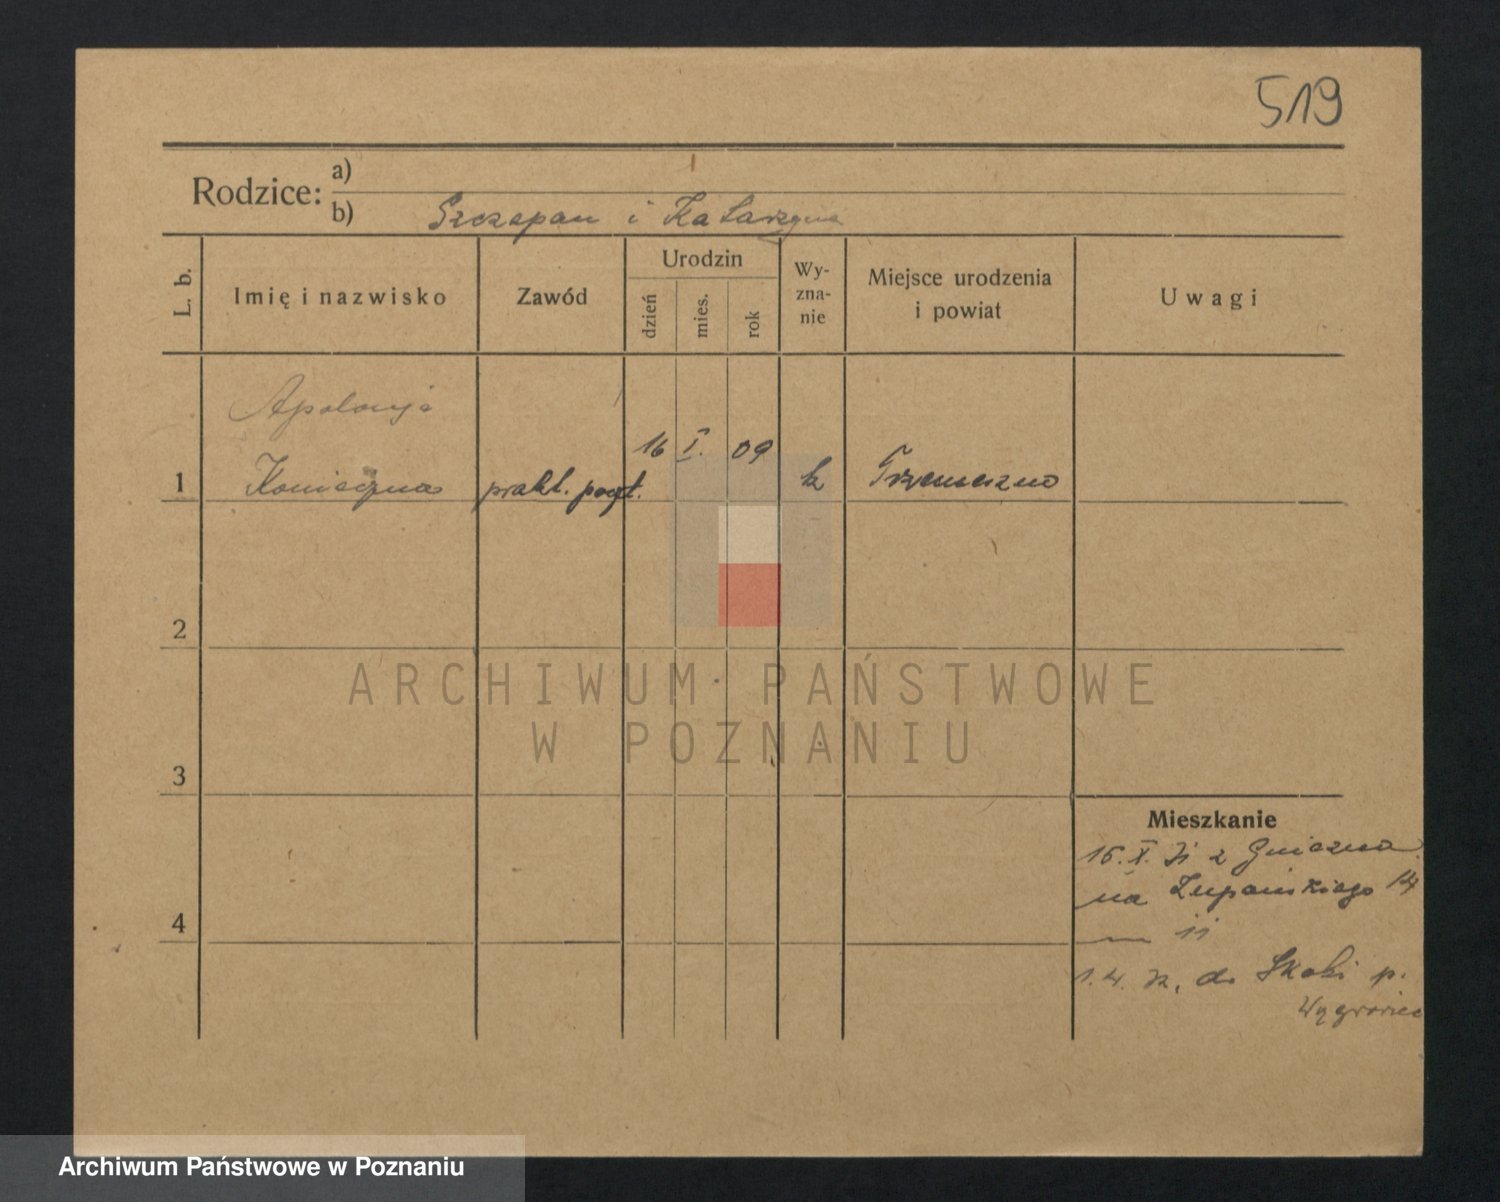 519
Rodzice:
a)
b) Szczepan i Katarzyna
L. b.
Imię i nazwisko
Zawód
Urodzin
dzień
mies.
rok
Wy-
zna-
nie
Miejsce urodzenia
i powiat
Uwagi
Apolonja
1 Konieczna prakt. poczt. 16 I. 09 k Trzemeszno
2
3
4
Mieszkanie
16. X. 31 z Gniezna
na Żupańskiego 14
— 11
1.4. 32, do Skoki p.
Wągrowiec
ARCHIWUM PAŃSTWOWE
W POZNANIU
Archiwum Państwowe w Poznaniu